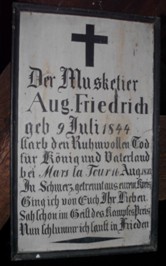 Der Musketier
Aug. Friedrich
geb 9 Juli 1844
starb den Ruhmvollen Tod
für König und Vaterland
bei Mars la Tour
In Schmerz, getrennt aus
Ging ich von Euch Ihr Lieben
Sah schon im Geist des Kampfes Preis
Nun schlummr ich sanft in Frieden